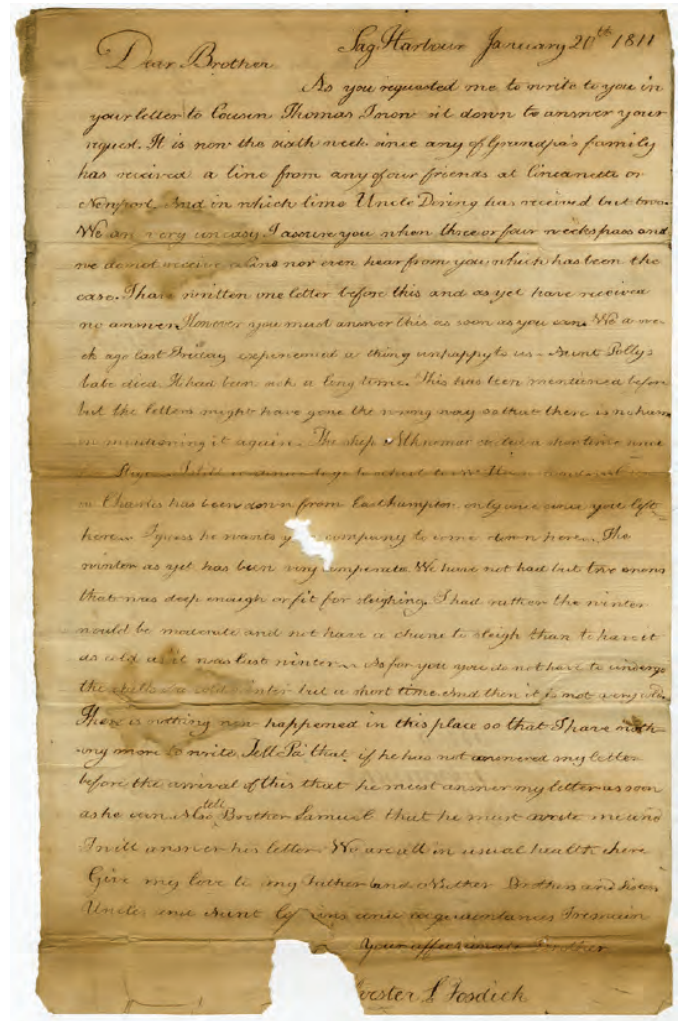 Sag Harbour January 20th 1811
Dear Brother
As you requested me to write to you in
your letter to Cousin Thomas I now sit down to answer your
request. It is now the sixth week since any of Grandpa's family
has received a line from any of our friends at Cincinatta or
Newport. And in which time Uncle Dering has received but two.
We are very uneasy I assure you when three or four weeks pass and
we do not receive a line nor even hear from you which has been the
case. I have written one letter before this and as yet have received
no answer. However you must answer this as soon as you can. We a we-
ek ago last Friday experienced a thing unhappy to us - Aunt Pollys
babe died. It had been sick a long time. This has been mentioned before
but the letters might have gone the wrong way so that there is no harm
in mentioning it again. The ship sailed a short time since
I still to go to school to
Charles has been down from Easthampton only once since you left
here. I guess he wants company to come down here. The
winter as yet has been very temperate. We have not had but two snows
that was deep enough or fit for sleighing. I had rather the winter
would be moderate and not have a chance to sleigh than to have it
as cold as it was last winter. As for you you do not have to undergo
the a cold winter but a short time. And then it is not very
There is nothing new happened in this place so that I have noth-
ing more to write Tell Pa that if he has not answered my letter
before the arrival of this that he must answer my letter as soon
as he can. Also tell Brother Samuel that he must write me and
I will answer his letter. We are all in usual health here
Give my love to my Father and Mother Brothers and Sisters
Uncles and Aunt and acquaintances I remain
Your affectionate Brother
vester L Fosdick